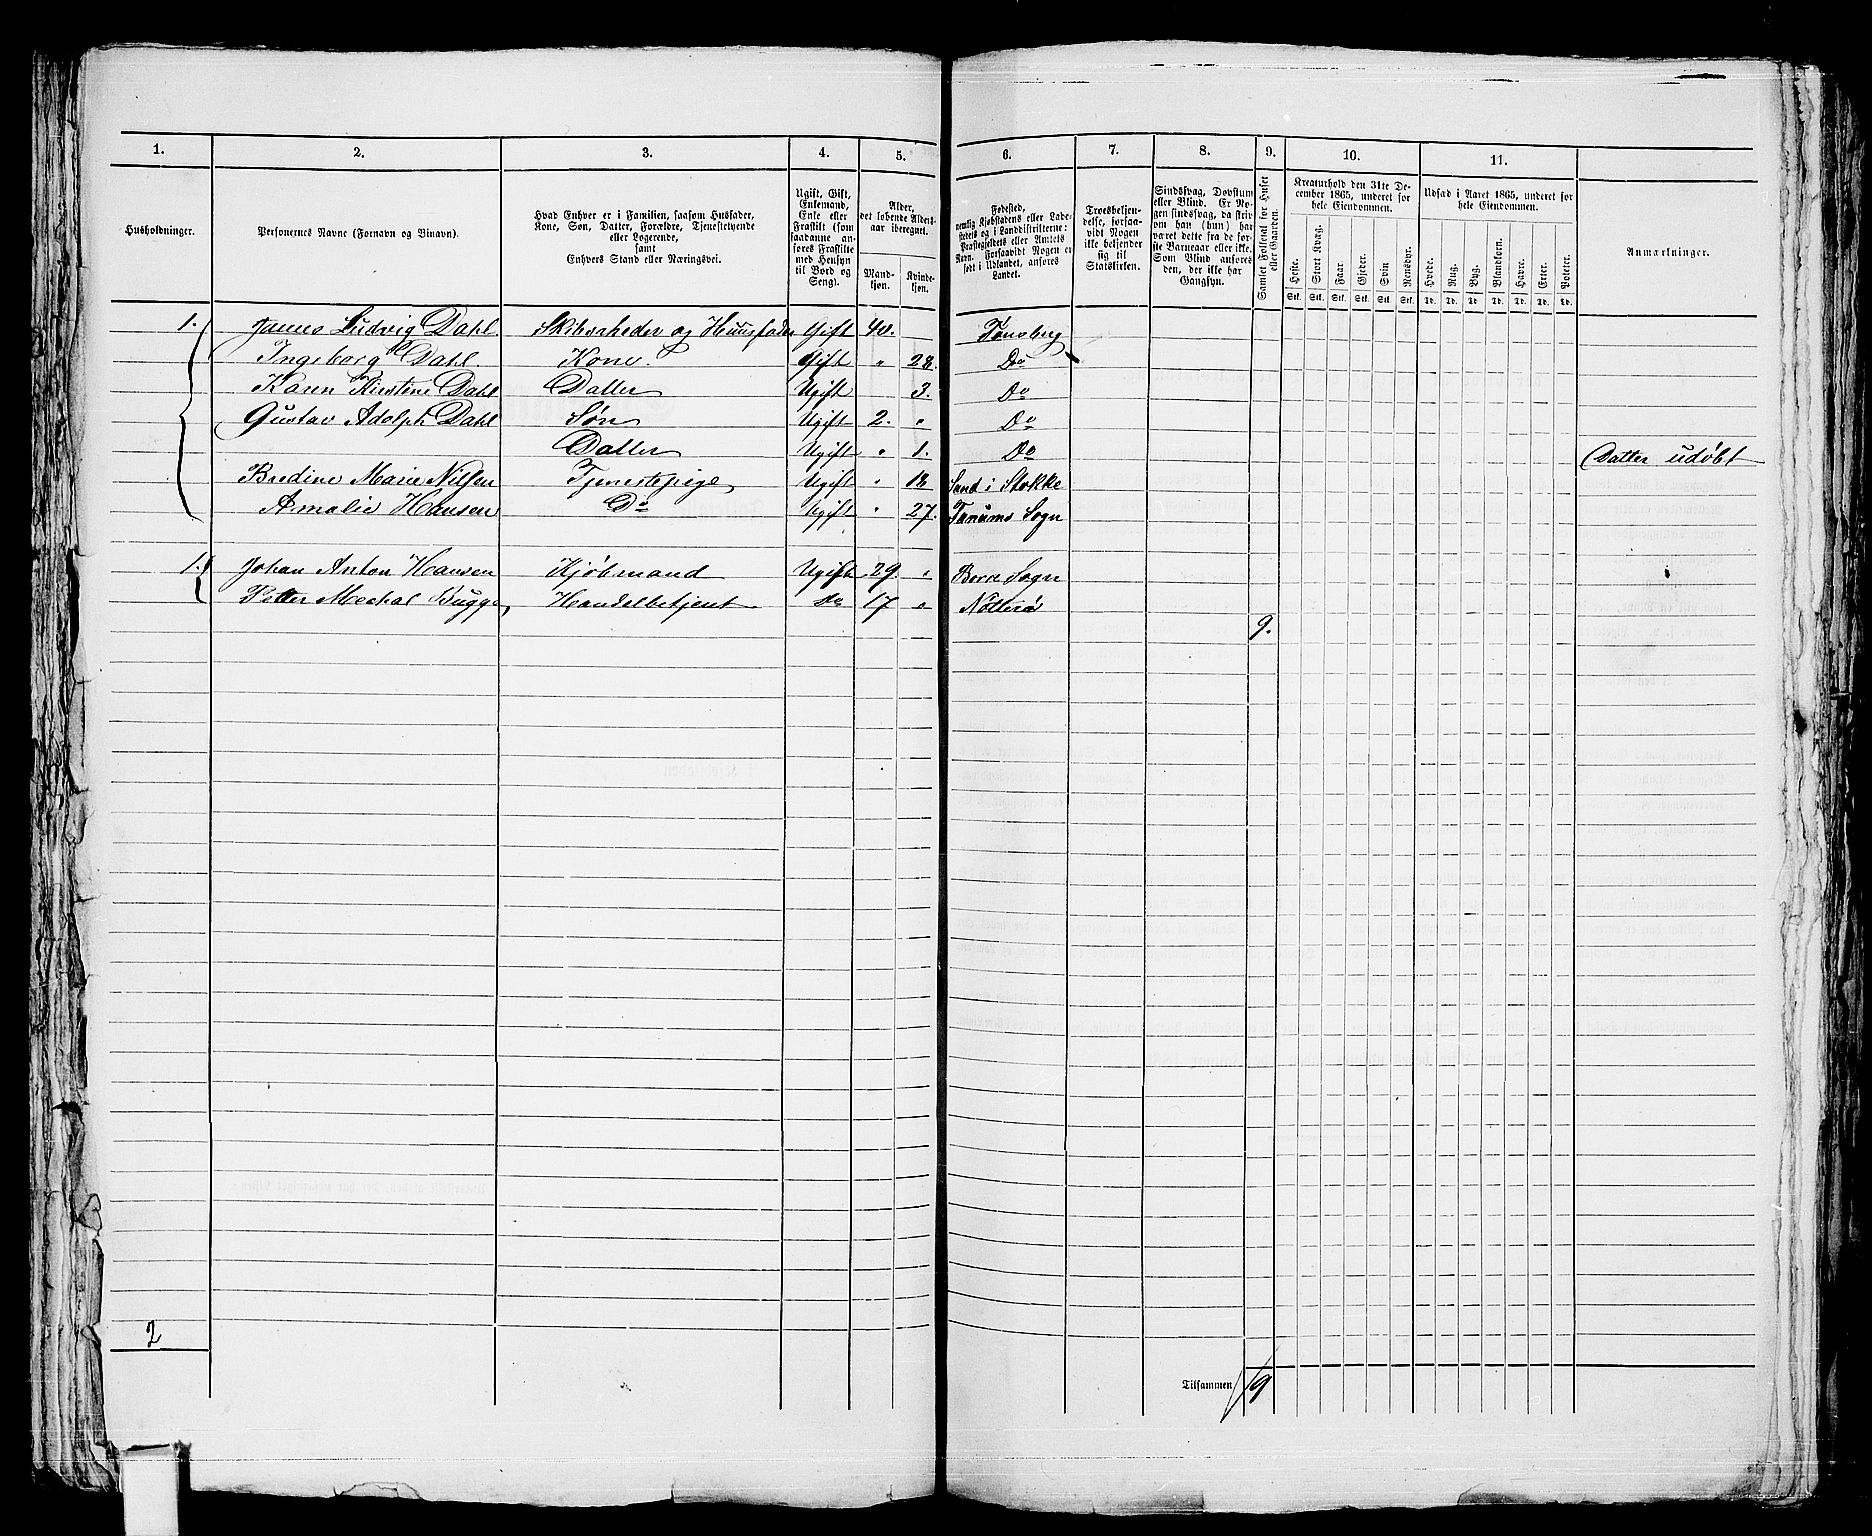 1. 2. 3. 4. 5. 6. 7. 8. 9. 10. 11.
Husholdninger.
Personernes Navne (Fornavn og Binavn).
Hvad Enhver er i Familien, saasom Husfader,
Kone, Søn, Datter, Forældre, Tjenestetyende
eller Logerende,
samt
Enhvers Stand eller Næringsvei.
Ugift, Gift,
Enkemand,
Enke eller
Fraskilt (som
saadanne an-
føres Fraskilte
med Hensyn
til Bord og
Seng).
Alder,
det løbende Alders-
aar iberegnet.
Mand-
kjøn.
Kvinde-
kjøn.
Fødested,
nemlig Kjøbstadens eller Lade-
stedets og i Landdistrikterne:
Præstegjeldets eller Amtets
Navn. Forsaavidt Nogen er
født i Udlandet, anføres
Landet.
Troesbekjen-
delse, forsaa-
vidt Nogen
ikke bekjender
sig til
Statskirken.
Sindssvag, Døvstum
eller Blind. Er No-
gen sindssvag, da skriv
om han (hun) har
været dette fra de før-
ste Barneaar eller ikke.
Som Blind anføres
den, der ikke har
Gangsyn.
Samlet Folketal for Huset
eller Gaarden.
Kreaturhold den 31te De-
cember 1865, underet for
hele Eiendommen.
Heste. Stort Kvæg. Faar. Gjeder. Svin Rensdyr.
Stk. Stk. Stk. Stk. Stk. Stk.
Udsæd i Aaret 1865, underet for
hele Eiendommen.
Hvede. Rug. Byg. Blandkorn. Havre. Erter. Poteter.
Td. Td. Td. Td. Td. Td. Td.
Anmærkninger.
1. James Ludvig Dahl Skibsrheder og Huusfader Gift 40. Tønsberg
Ingeborg Dahl. Kone. Gift " 28. Do
Karen Kirstine Dahl Datter Ugift 3. Do
Gustav Adolph Dahl Søn Ugift 2. " Do
Datter Ugift " 1. Do Datter udøbt
Bredine Marie Nilsen Tjenestepige Ugift " 18 Sand i Stokke
Amalie Hansen Do Ugift " 27. Tanums Sogn
1. Johan Anton Hansen Kjøbmand Ugift 29. " Borre Sogn
Petter Mechal Bugge, Handelbetjent Do 17 " Nøtterø
9.
2
Tilsammen 9